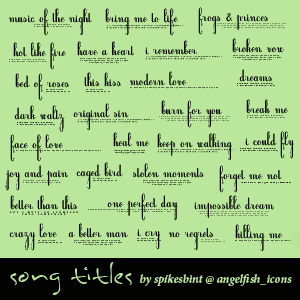 music of the night bring me to life frogs & princes
hot like fire have a heart i remember broken vow
bed of roses this kiss modern love dreams
dark waltz original sin burn for you break me
face of love heal me keep on walking i could fly
joy and pain caged bird stolen moments forget me not
better than this one perfect day impossible dream
crazy love a better man i cry no regrets killing me
song titles by spikesbint @ angelfish_icons